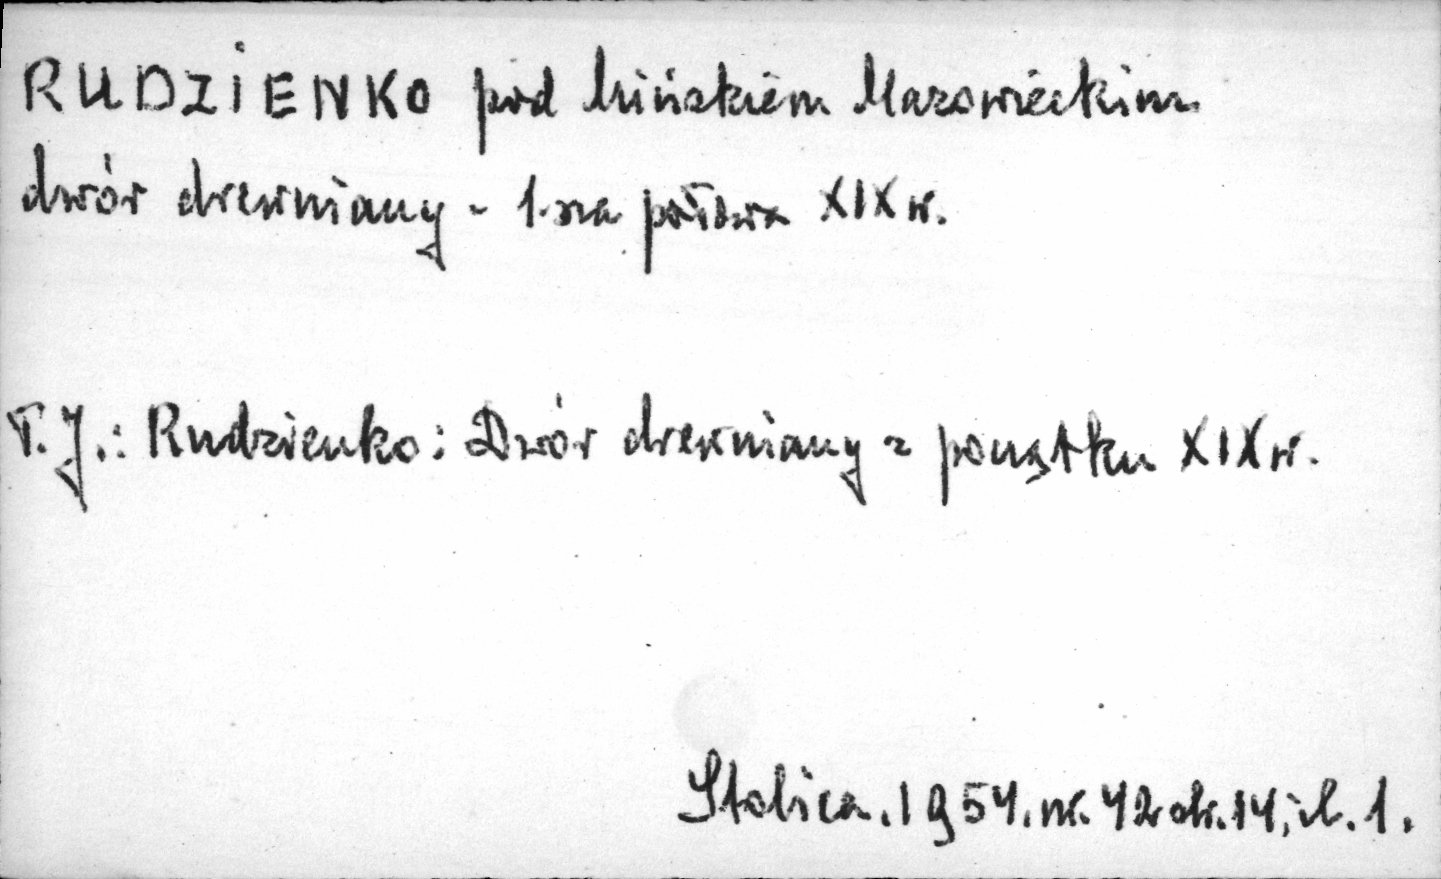 RUDZIENKO pod Mińskiem Mazowieckim
dwór drewniany - 1.sza połowa XIX w.
T.J.: Rudzienko: Dwór drewniany z początku XIX w.
Stolica. 1954. nr. 42 str. 14, il. 1.